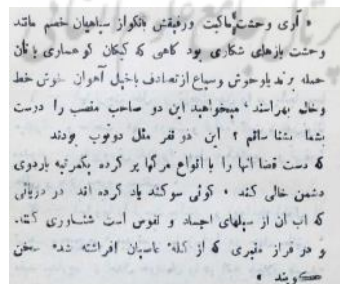 « آری وحشت ماکیت ورفیقش بانکواز سپاهیان خصم مانند
وحشت بازهای شکاری بود گاهی که کبکان کوهساری با نان
حمله برند یاوحوش وسباع ازتصادف باخیل آهوان خوش خط
وخال بهراسند ، میخواهید این دو صاحب منصب را درست
بشما بشنا سانم ؟ این دو نفر مثل دوتوپ بودند
که دست قضا انها را با انواع مرگها پر کرده یکمرتبه باردوی
دشمن خالی کند ، گوئی سوگند یاد کرده اند در دریائی
که اب ان از سیلهای اجساد و نفوس است شناوری کنند
و در فراز منبری که از کله عاصیان افراشته شده سخن
گویند »